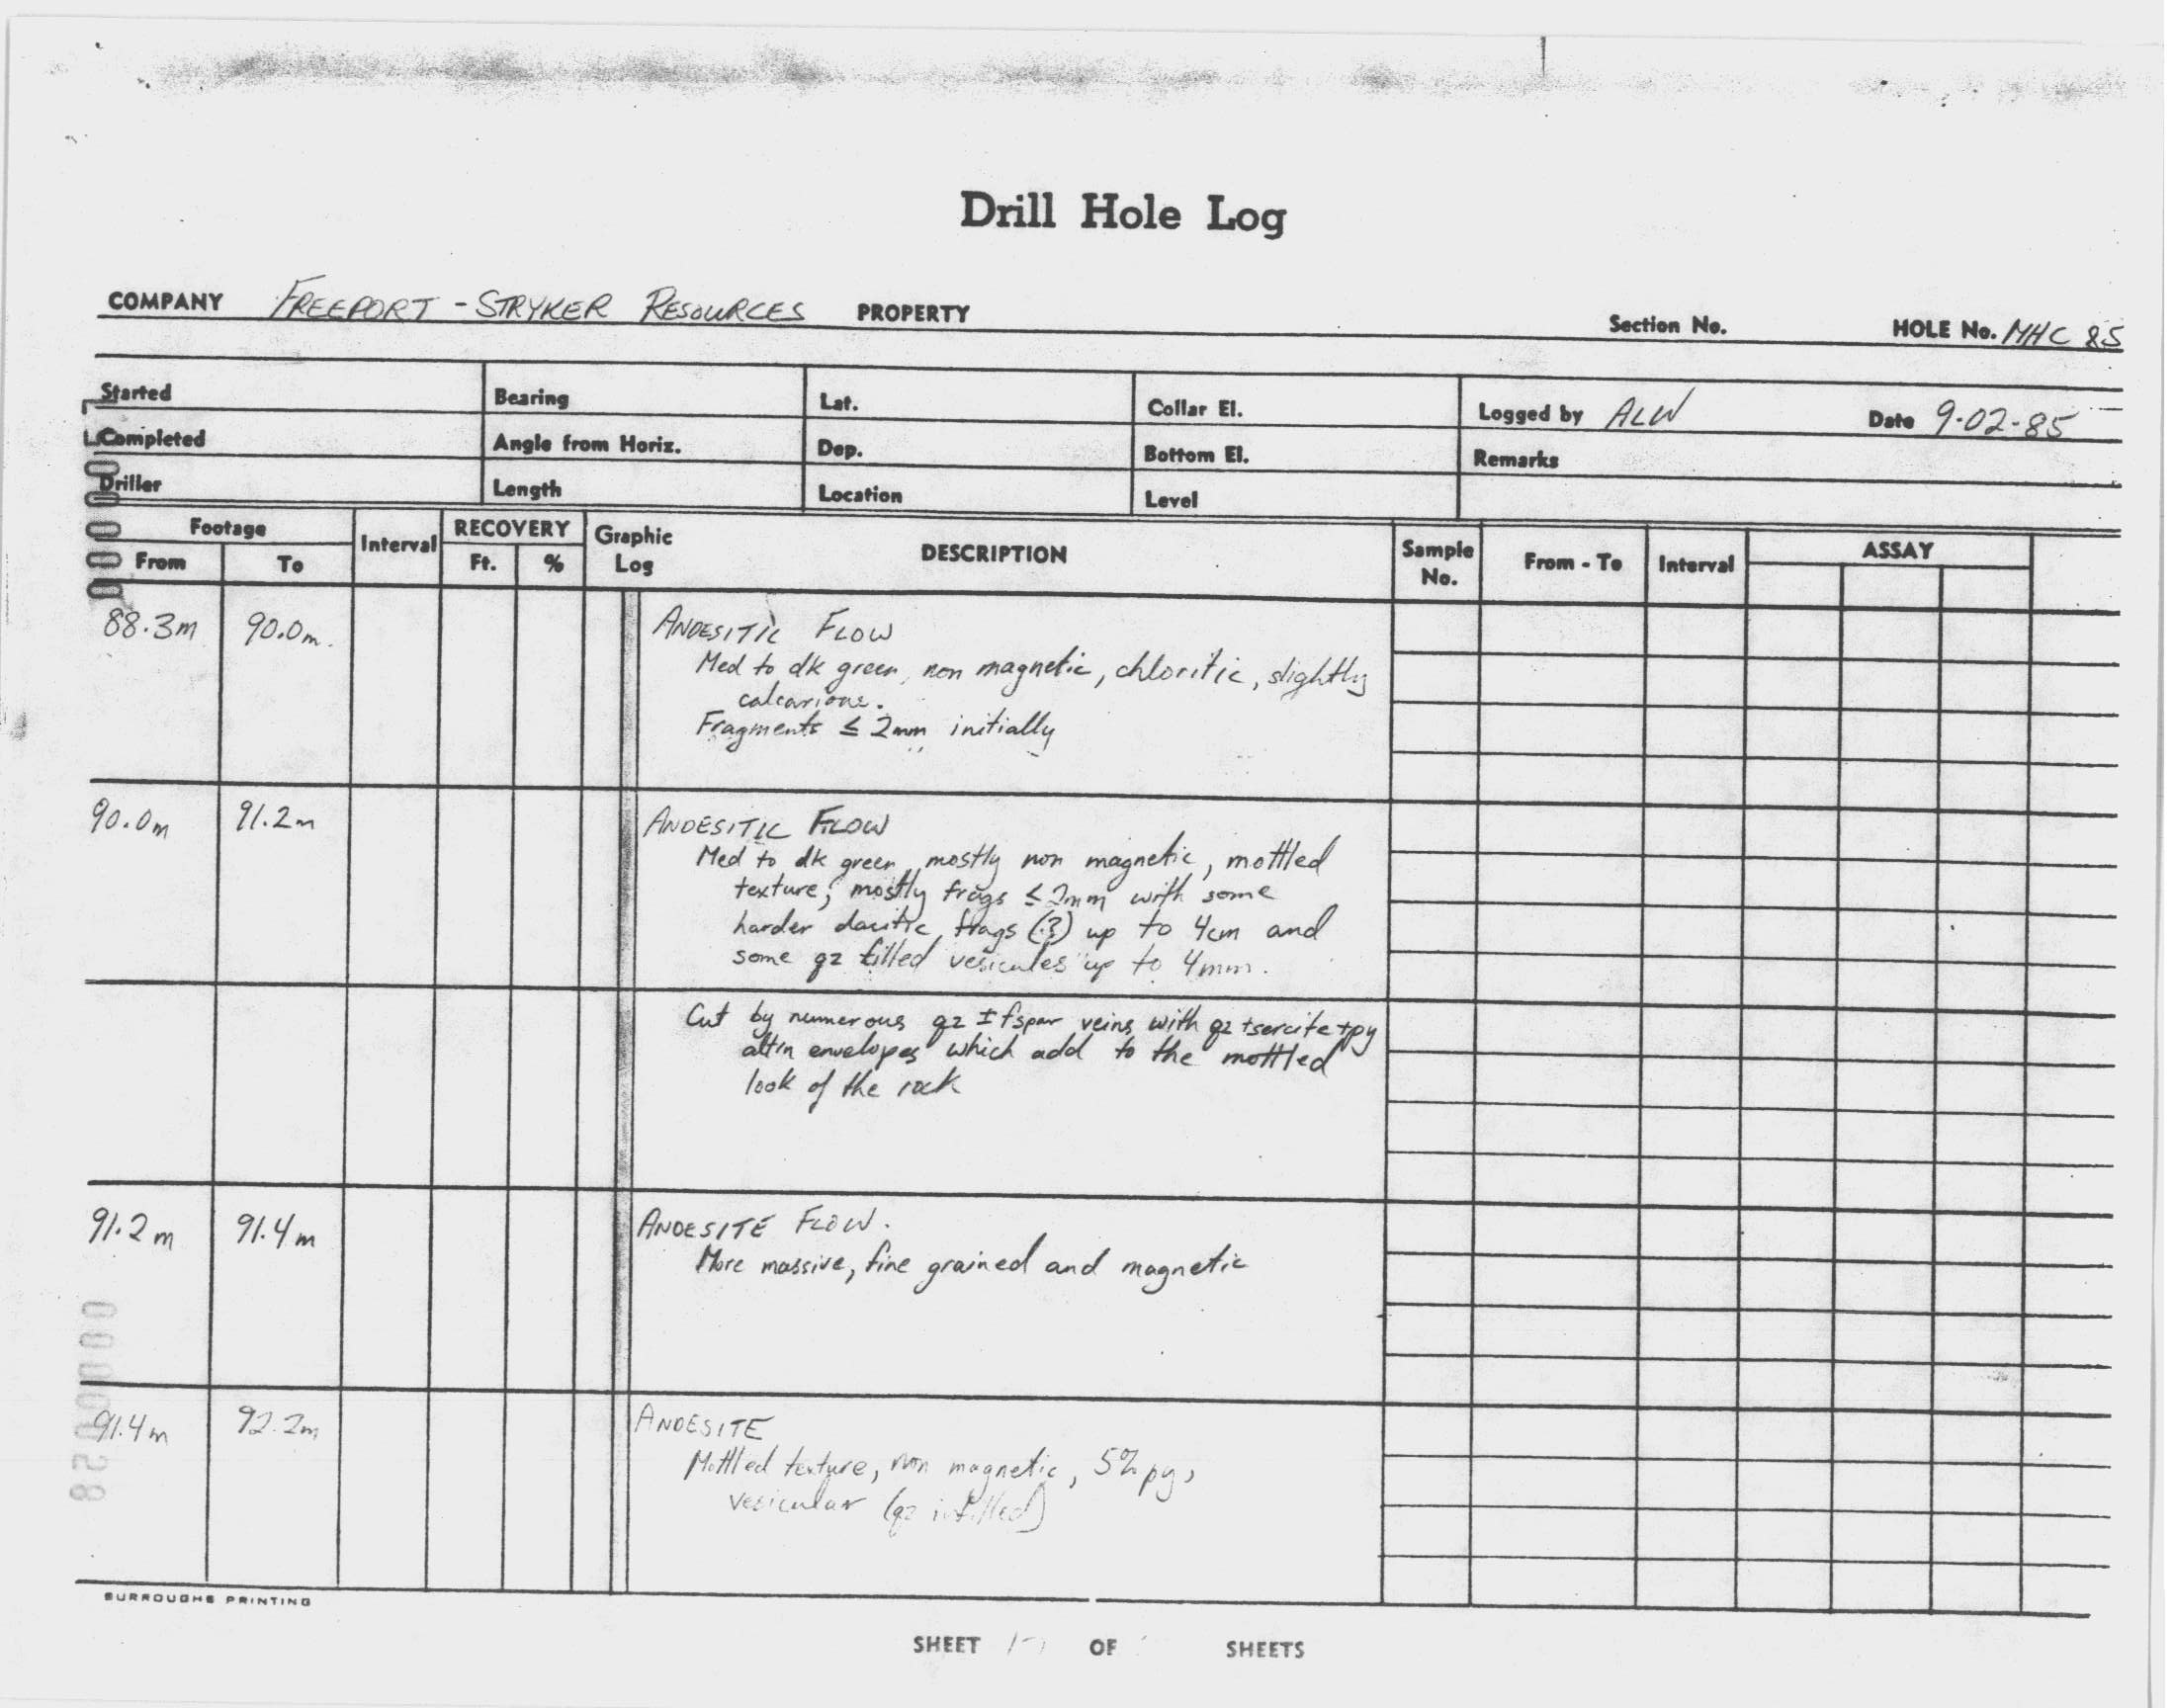 Drill Hole Log
COMPANY FREEPORT - STRYKER RESOURCES PROPERTY Section No. HOLE No. MHC 85
Started Bearing Lat. Collar El. Logged by ALW Date 9-02-85
Completed Angle from Horiz. Dep. Bottom El. Remarks
Driller Length Location Level
Footage Interval RECOVERY Graphic Log DESCRIPTION Sample No. From - To Interval ASSAY
From To Ft. %
88.3m 90.0m. ANDESITIC FLOW
Med to dk green, non magnetic, chloritic, slightly
calcarious.
Fragments ≤ 2mm initially
90.0m 91.2m ANDESITIC FLOW
Med to dk green, mostly non magnetic, mottled
texture; mostly frags ≤ 2mm with some
harder dacitic frags (?) up to 4cm and
some qz filled vesicules up to 4mm.
Cut by numerous qz ± fspar veins with qz + sercite + py
altn envelopes which add to the mottled
look of the rock
91.2m 91.4m ANDESITE FLOW.
More massive, fine grained and magnetic
91.4m 92.2m ANDESITE
Mottled texture, non magnetic, 5% py,
vesicular (qz infilled)
BURROUGHS PRINTING
SHEET OF SHEETS